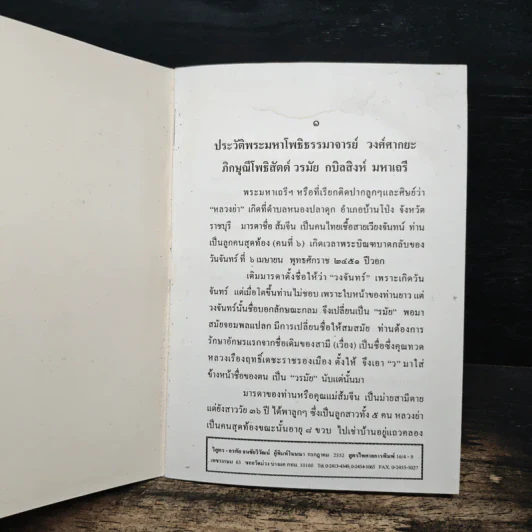 ๑
ประวัติพระมหาโพธิธรรมาจารย์ วงศ์ศากยะ
ภิกษุณีโพธิสัตต์ วรมัย กบิลสิงห์ มหาเถรี
พระมหาเถรีฯ หรือที่เรียกติดปากลูกๆและศิษย์ว่า
"หลวงย่า" เกิดที่ตำบลหนองปลาดุก อำเภอบ้านโป่ง จังหวัด
ราชบุรี มารดาชื่อ ส้มจีน เป็นคนไทยเชื้อสายเวียงจันทน์ ท่าน
เป็นลูกคนสุดท้อง (คนที่ ๖) เกิดเวลาพระบิณฑบาตกลับของ
วันจันทร์ ที่ ๖ เมษายน พุทธศักราช ๒๔๕๑ ปีวอก
เดิมมารดาตั้งชื่อให้ว่า "วงจันทร์" เพราะเกิดวัน
จันทร์ แต่เมื่อโตขึ้นท่านไม่ชอบ เพราะใบหน้าของท่านยาว แต่
วงจันทร์นั้นชื่อบอกลักษณะกลม จึงเปลี่ยนเป็น "รมัย" พอมา
สมัยจอมพลแปลก มีการเปลี่ยนชื่อให้สมสมัย ท่านต้องการ
รักษาอักษรแรกจากชื่อเดิมของสามี (เรื่อง) เป็นชื่อซึ่งคุณทวด
หลวงเรืองฤทธิ์เดชะราชรองเมือง ตั้งให้ จึงเอา "ว" มาใส่
ข้างหน้าชื่อของตน เป็น "วรมัย" นับแต่นั้นมา
มารดาของท่านหรือคุณแม่ส้มจีน เป็นม่ายสามีตาย
แต่ยังสาววัย ๓๖ ปี ได้พาลูกๆ ซึ่งเป็นลูกสาวทั้ง ๕ คน หลวงย่า
เป็นคนสุดท้องขณะนั้นอายุ ๘ ขวบ ไปเช่าบ้านอยู่แถวคลอง